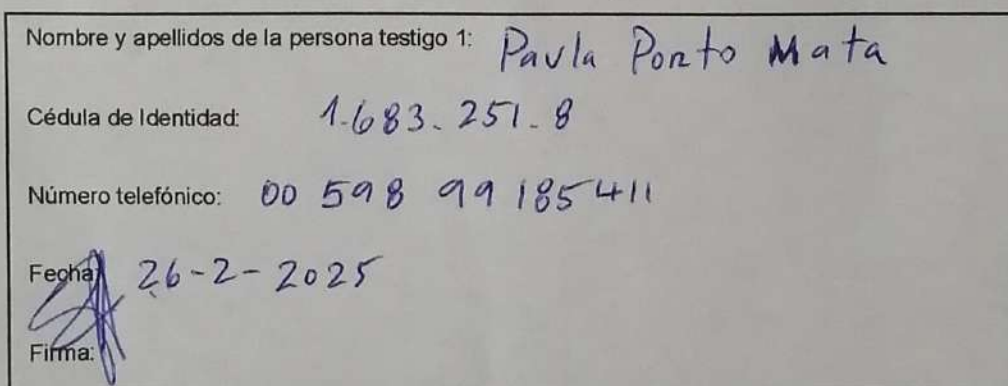 Nombre y apellidos de la persona testigo 1: Paula Ponto Mata
Cédula de Identidad: 1.683.251.8
Número telefónico: 00 598 99 185411
Fecha: 26-2-2025
Firma: